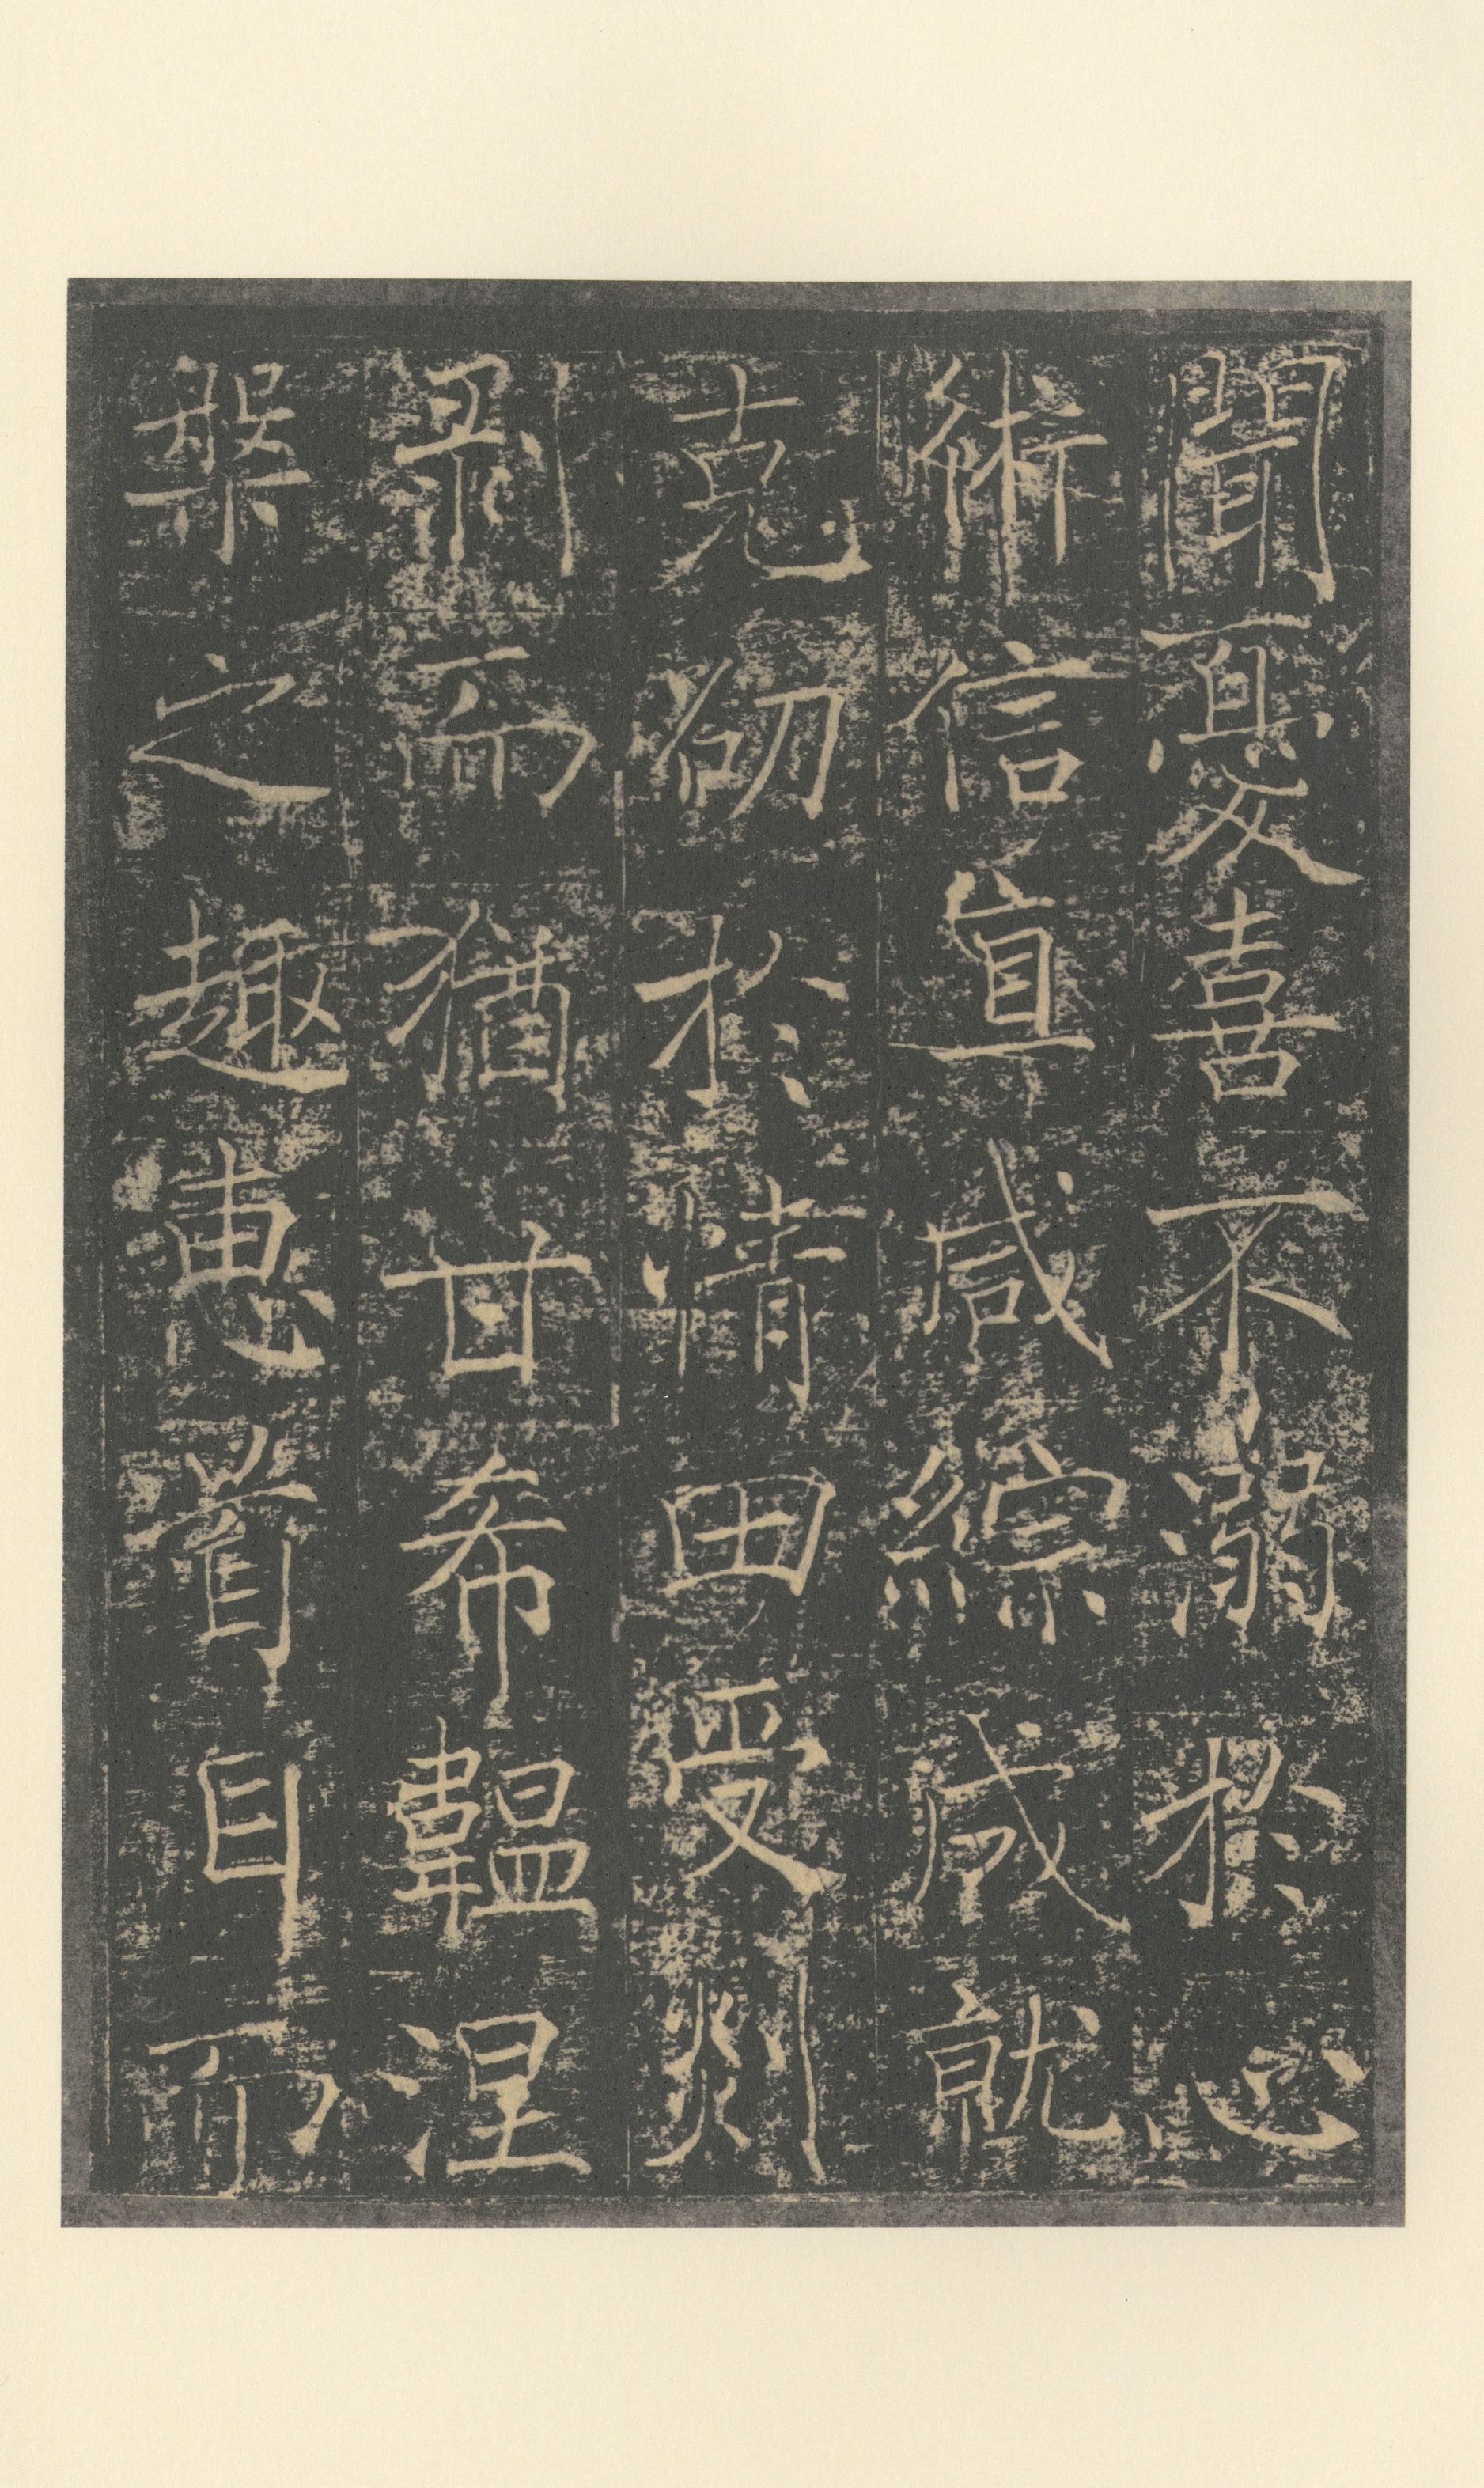 聞憂喜不溺於心
術信宜咸綜成就
克於情田受剡
剝而猶甘希韞涅
槃之趣惠首目而